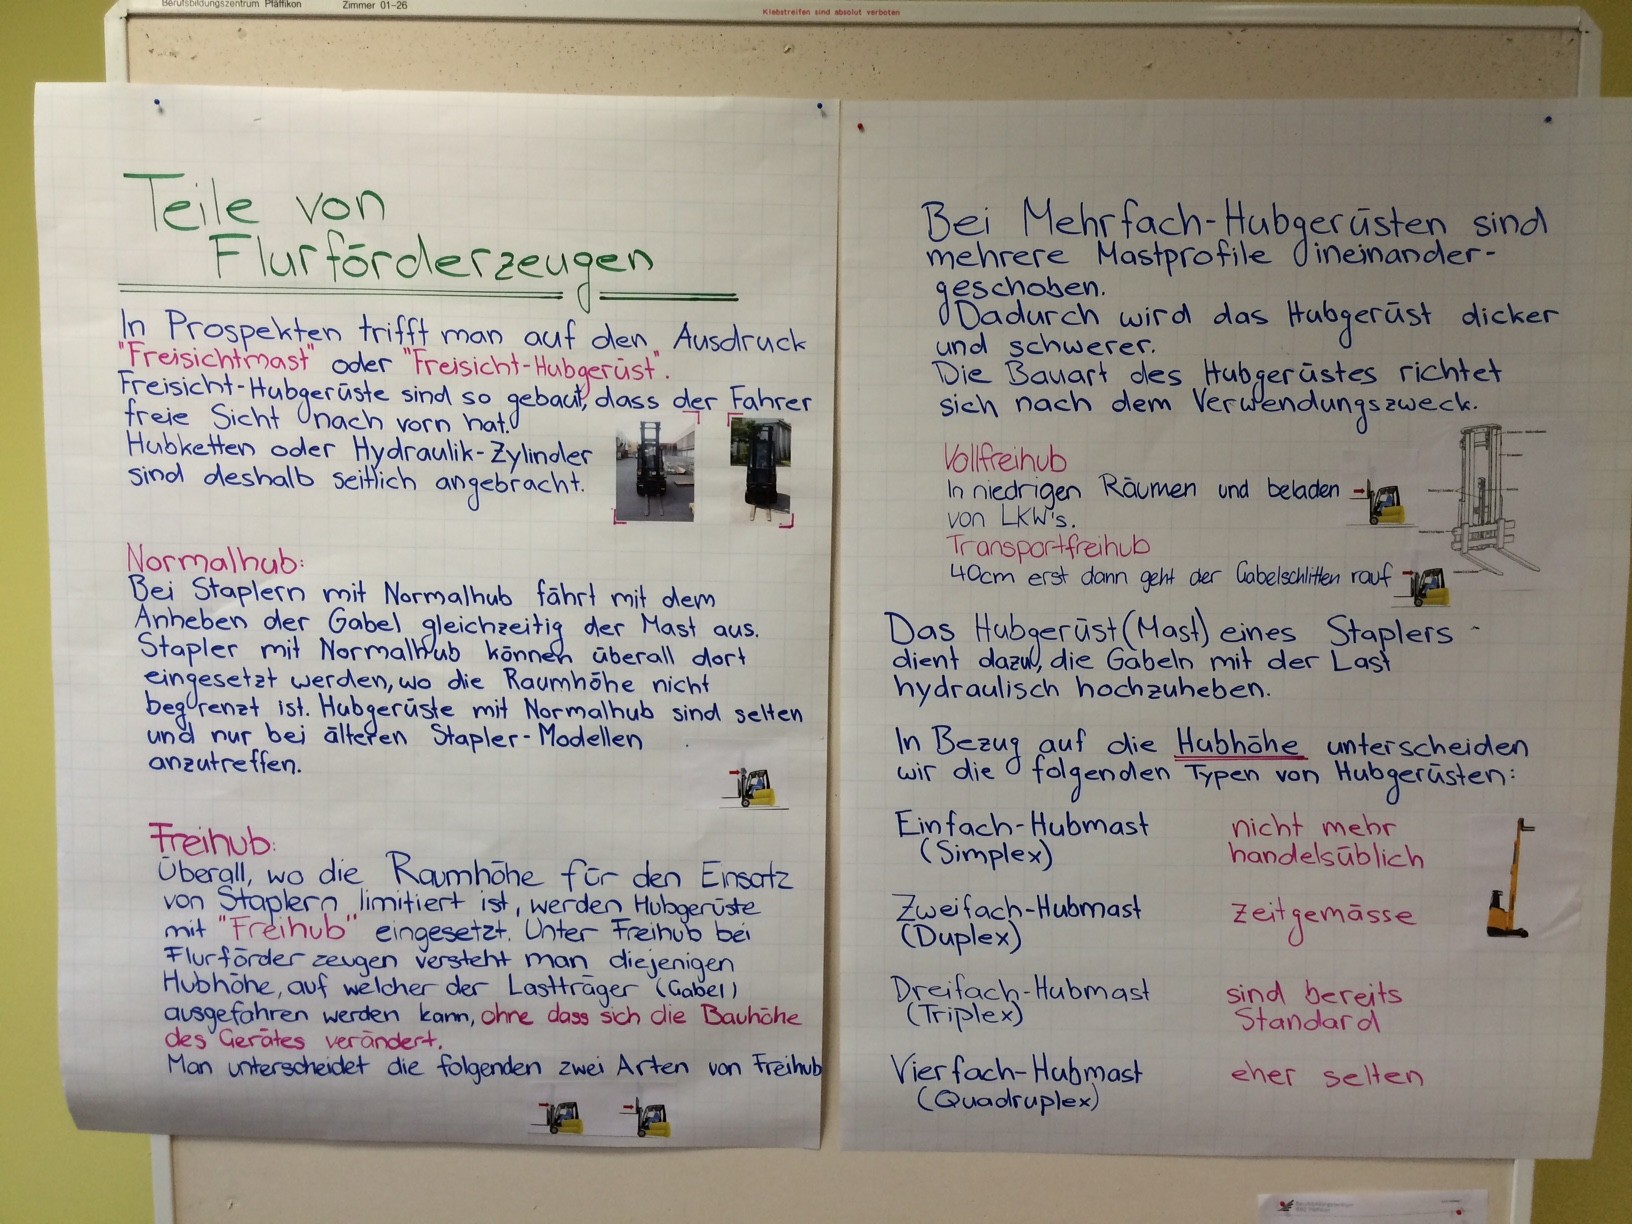 Berufsbildungszentrum Pfäffikon Zimmer 01-26
Klebstreifen sind absolut verboten
Teile von
Flurförderzeugen
In Prospekten trifft man auf den Ausdruck
"Freisichtmast" oder "Freisicht-Hubgerüst".
Freisicht-Hubgerüste sind so gebaut, dass der Fahrer
freie Sicht nach vorn hat.
Hubketten oder Hydraulik-Zylinder
sind deshalb seitlich angebracht.
Normalhub:
Bei Staplern mit Normalhub fährt mit dem
Anheben der Gabel gleichzeitig der Mast aus.
Stapler mit Normalhub können überall dort
eingesetzt werden, wo die Raumhöhe nicht
begrenzt ist. Hubgerüste mit Normalhub sind selten
und nur bei älteren Stapler-Modellen
anzutreffen.
Freihub:
Überall, wo die Raumhöhe für den Einsatz
von Staplern limitiert ist, werden Hubgerüste
mit "Freihub" eingesetzt. Unter Freihub bei
Flurförderzeugen versteht man diejenigen
Hubhöhe, auf welcher der Lastträger (Gabel)
ausgefahren werden kann, ohne dass sich die Bauhöhe
des Gerätes verändert.
Man unterscheidet die folgenden zwei Arten von Freihub
Bei Mehrfach-Hubgerüsten sind
mehrere Mastprofile ineinander-
geschoben.
Dadurch wird das Hubgerüst dicker
und schwerer.
Die Bauart des Hubgerüstes richtet
sich nach dem Verwendungszweck.
Vollfreihub
In niedrigen Räumen und beladen
von LKW's.
Transportfreihub
40cm erst dann geht der Gabelschlitten rauf
Das Hubgerüst (Mast) eines Staplers
dient dazu, die Gabeln mit der Last
hydraulisch hochzuheben.
In Bezug auf die Hubhöhe unterscheiden
wir die folgenden Typen von Hubgerüsten:
Einfach-Hubmast nicht mehr
(Simplex) handelsüblich
Zweifach-Hubmast zeitgemässe
(Duplex)
Dreifach-Hubmast sind bereits
(Triplex) Standard
Vierfach-Hubmast eher selten
(Quadruplex)